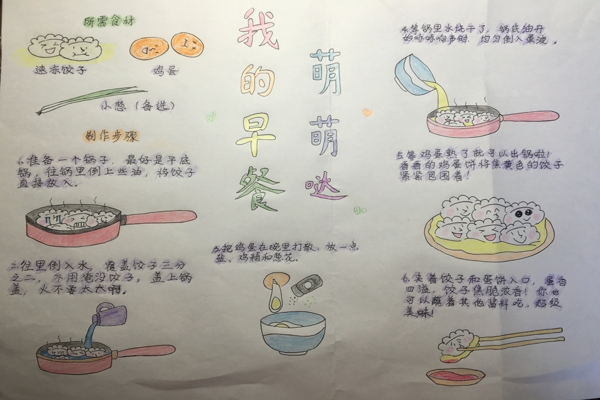 我的早餐
萌萌哒
所需食材
速冻饺子
鸡蛋
小葱（备选）
制作步骤
1.准备一个锅子，最好是平底
锅，往锅里倒上些油，将饺子
直接放入。
2.往里倒入水，覆盖饺子三分
之二，不用淹没饺子，盖上锅
盖，火不要太大啊。
3.把鸡蛋在碗里打散，放一点
盐、鸡精和葱花。
4.等锅里水烧干了，锅底油开
始咝咝响时，均匀倒入蛋液。
5.等鸡蛋熟了就可以出锅啦！
香香的鸡蛋饼将焦黄色的饺子
紧紧包围着！
6.夹着饺子和蛋饼入口，蛋香
四溢，饺子焦脆浓香！你也
可以蘸着其他酱料吃，超级
美味！